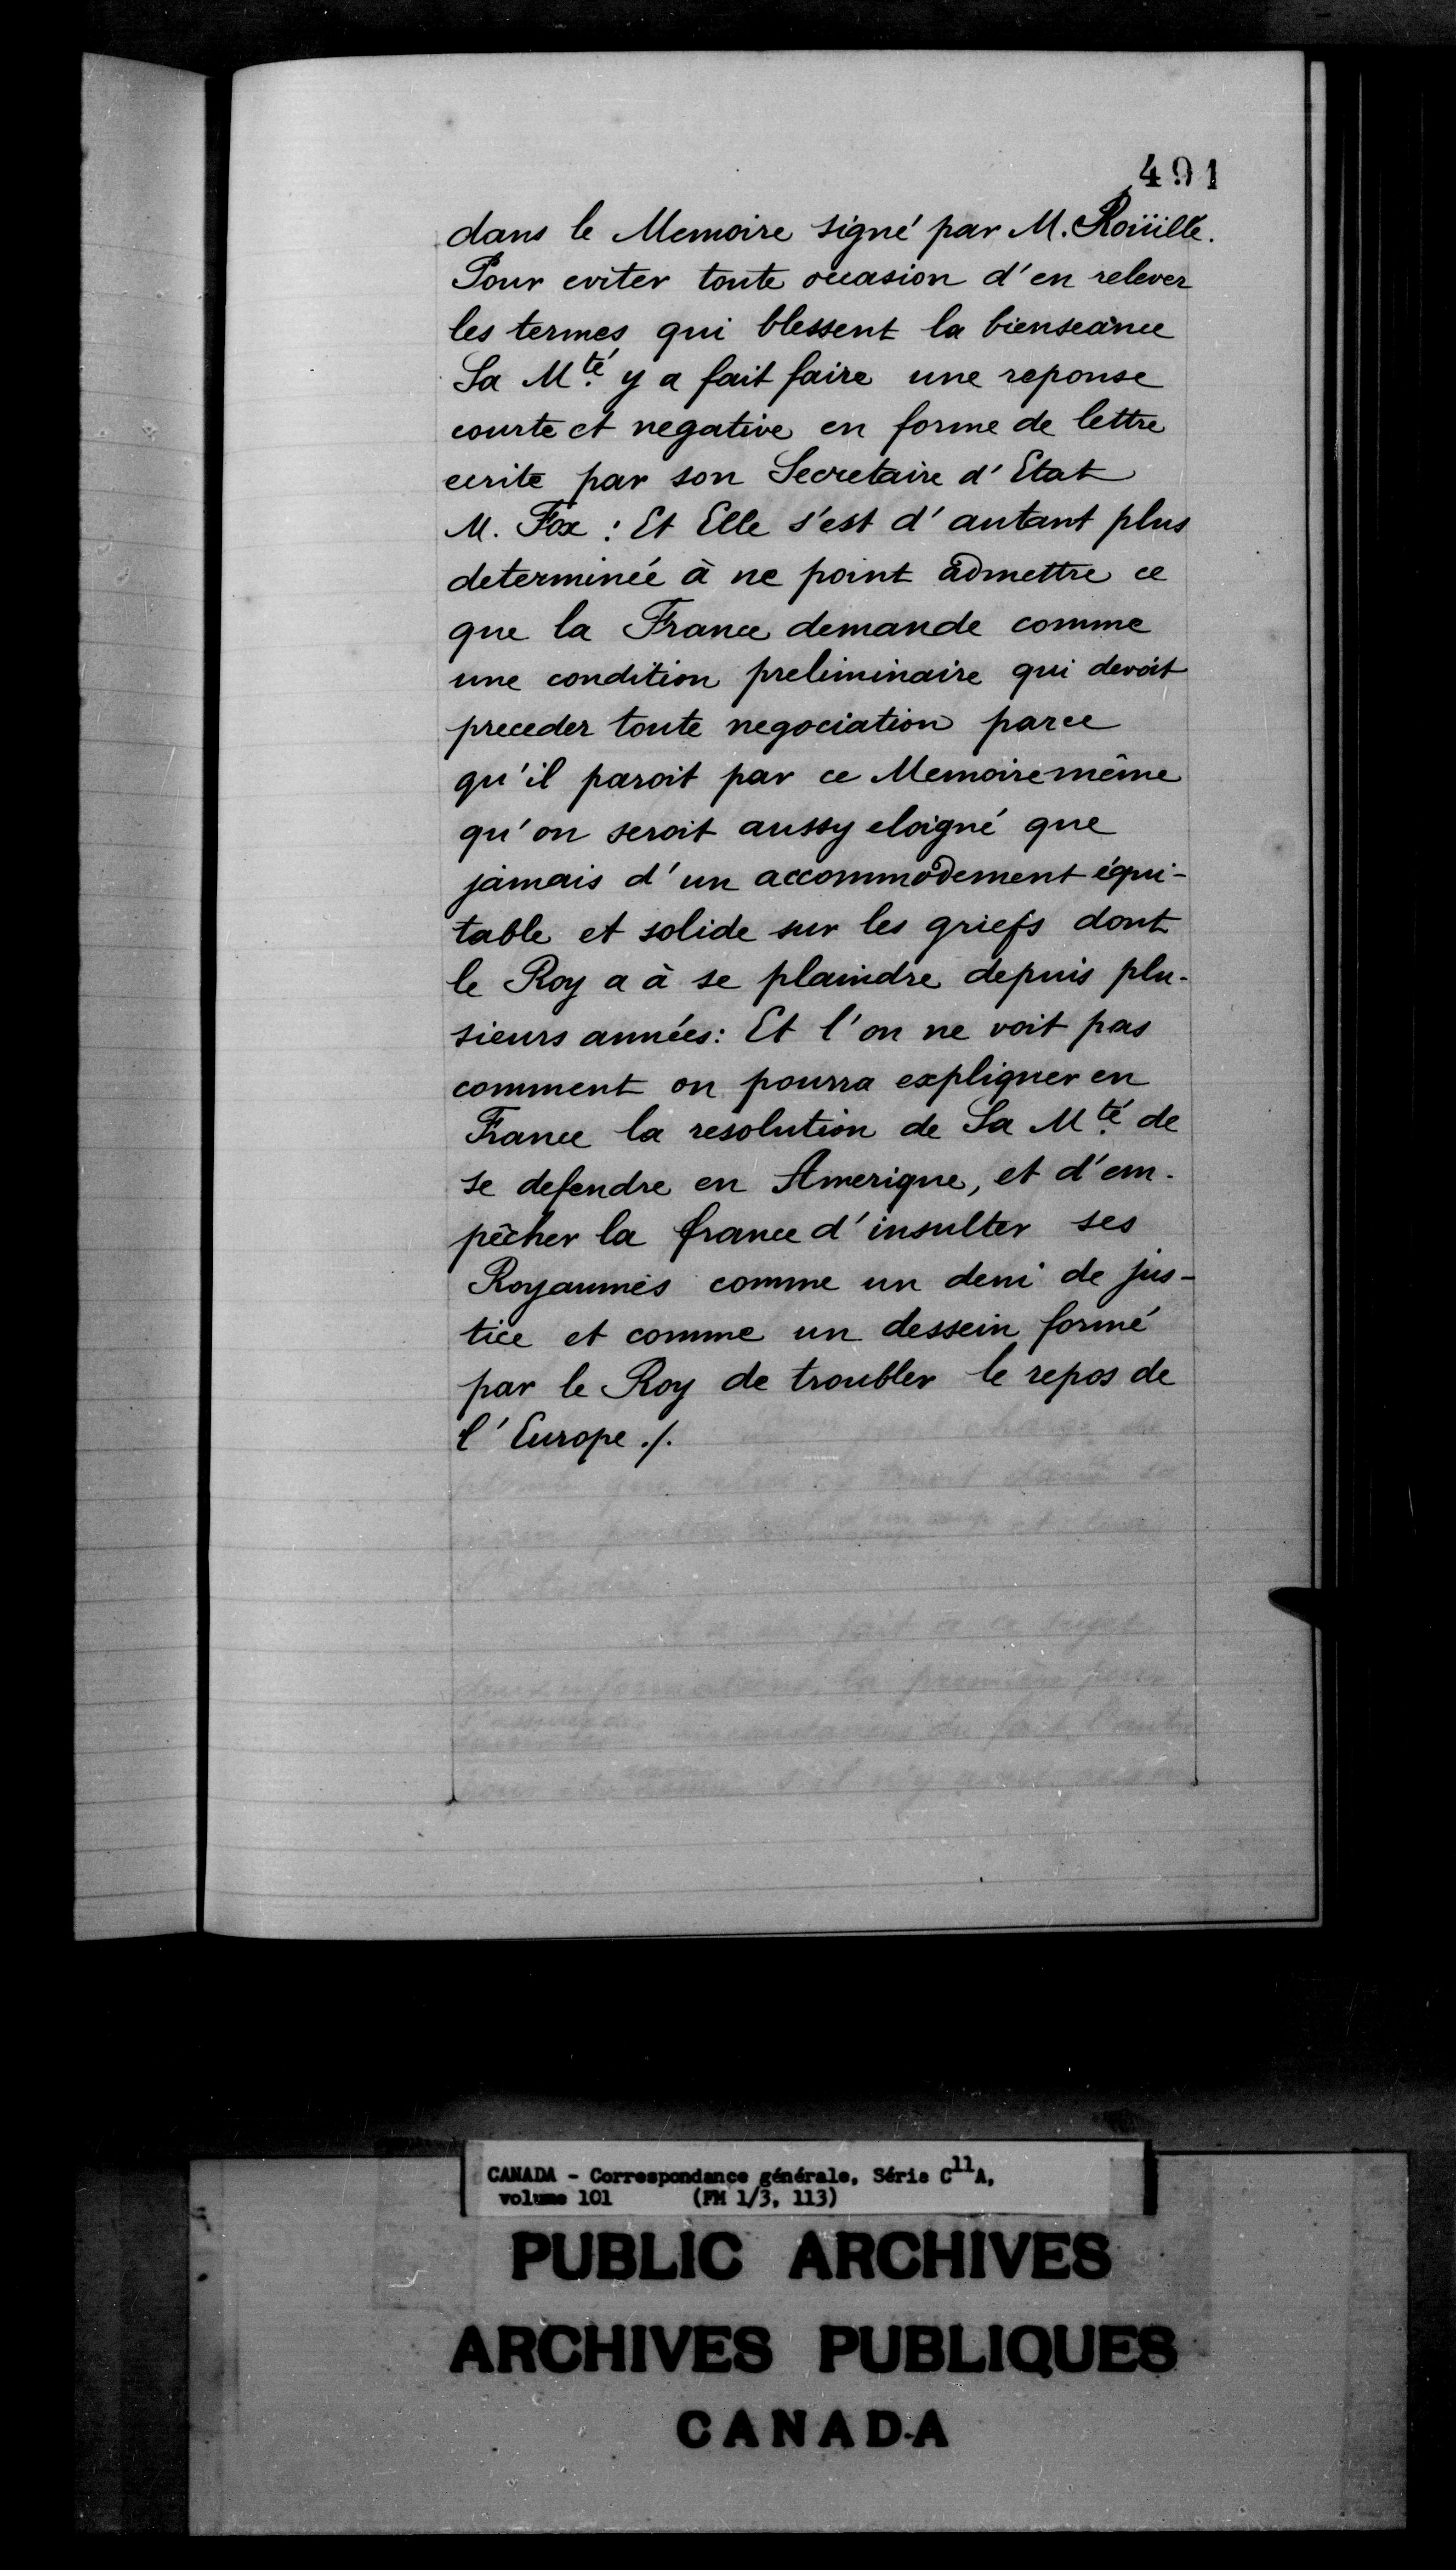 491
dans le Memoire signé par M. Roüillé.
Pour eviter toute occasion d'en relever
les termes qui blessent la bienseance
Sa M.té y a fait faire une reponse
courte et negative en forme de lettre
ecrite par son Secretaire d'Etat
M. Fox : Et Elle s'est d'autant plus
determinée à ne point admettre ce
que la France demande comme
une condition preliminaire qui devoit
preceder toute negociation parce
qu'il paroit par ce Memoire même
qu'on seroit aussy eloigné que
jamais d'un accommodement équi-
table et solide sur les griefs dont
le Roy a à se plaindre depuis plu-
sieurs années: Et l'on ne voit pas
comment on pourra expliquer en
France la resolution de Sa M.té de
se defendre en Amerique, et d'em-
pêcher la france d'insulter ses
Royaumes comme un deni de jus-
tice et comme un dessein formé
par le Roy de troubler le repos de
l'Europe ./.
CANADA - Correspondance générale, Série C11A,
volume 101 (FM 1/3, 113)
PUBLIC ARCHIVES
ARCHIVES PUBLIQUES
CANADA